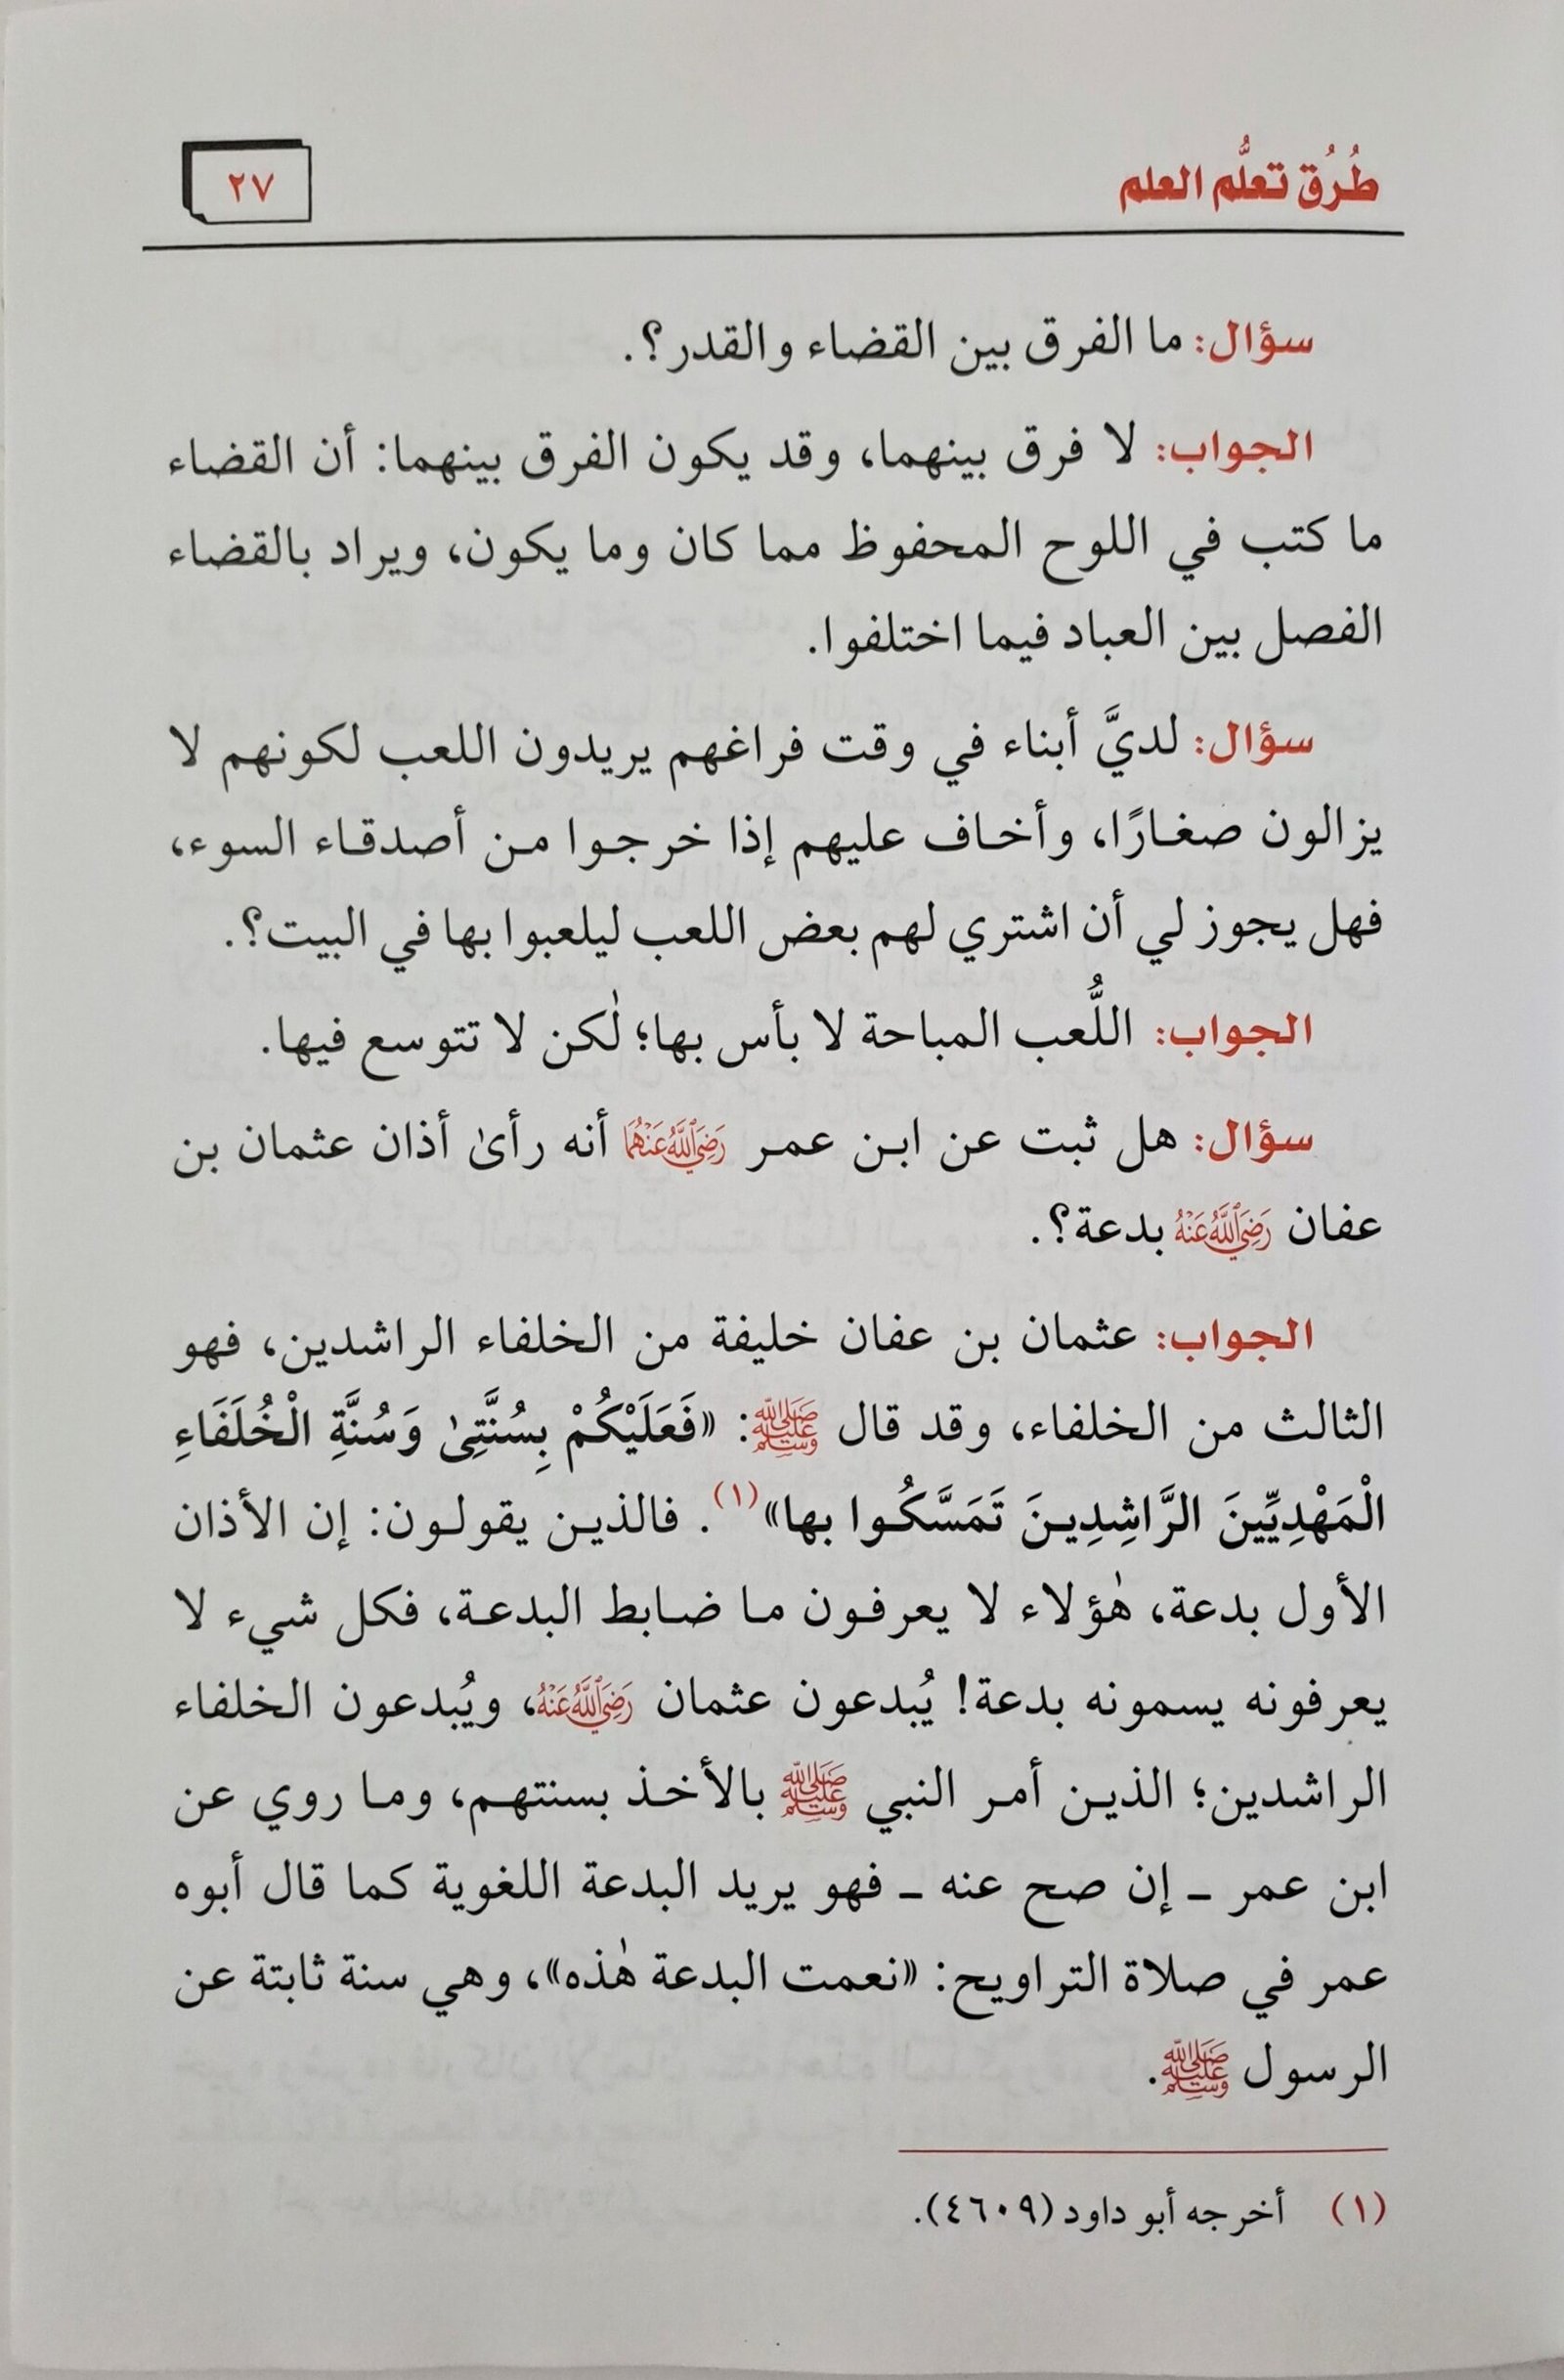 طُرُق تعلُّم العلم
٢٧
سؤال: ما الفرق بين القضاء والقدر؟.
الجواب: لا فرق بينهما، وقد يكون الفرق بينهما: أن القضاء
ما كتب في اللوح المحفوظ مما كان وما يكون، ويراد بالقضاء
الفصل بين العباد فيما اختلفوا.
سؤال: لديَّ أبناء في وقت فراغهم يريدون اللعب لكونهم لا
يزالون صغارًا، وأخاف عليهم إذا خرجوا من أصدقاء السوء،
فهل يجوز لي أن اشتري لهم بعض اللعب ليلعبوا بها في البيت؟.
الجواب: اللُّعب المباحة لا بأس بها؛ لٰكن لا تتوسع فيها.
سؤال: هل ثبت عن ابن عمر رَضِيَ ٱللَّهُ عَنْهُمَا أنه رأىٰ أذان عثمان بن
عفان رَضِيَ ٱللَّهُ عَنْهُ بدعة؟.
الجواب: عثمان بن عفان خليفة من الخلفاء الراشدين، فهو
الثالث من الخلفاء، وقد قال ﷺ: «فَعَلَيْكُمْ بِسُنَّتِىٰ وَسُنَّةِ الْخُلَفَاءِ
الْمَهْدِيِّينَ الرَّاشِدِينَ تَمَسَّكُوا بها»(١). فالذين يقولون: إن الأذان
الأول بدعة، هٰؤلاء لا يعرفون ما ضابط البدعة، فكل شيء لا
يعرفونه يسمونه بدعة! يُبدعون عثمان رَضِيَ ٱللَّهُ عَنْهُ، ويُبدعون الخلفاء
الراشدين؛ الذين أمر النبي ﷺ بالأخذ بسنتهم، وما روي عن
ابن عمر ـ إن صح عنه ـ فهو يريد البدعة اللغوية كما قال أبوه
عمر في صلاة التراويح: «نعمت البدعة هٰذه»، وهي سنة ثابتة عن
الرسول ﷺ.
(١) أخرجه أبو داود (٤٦٠٩).